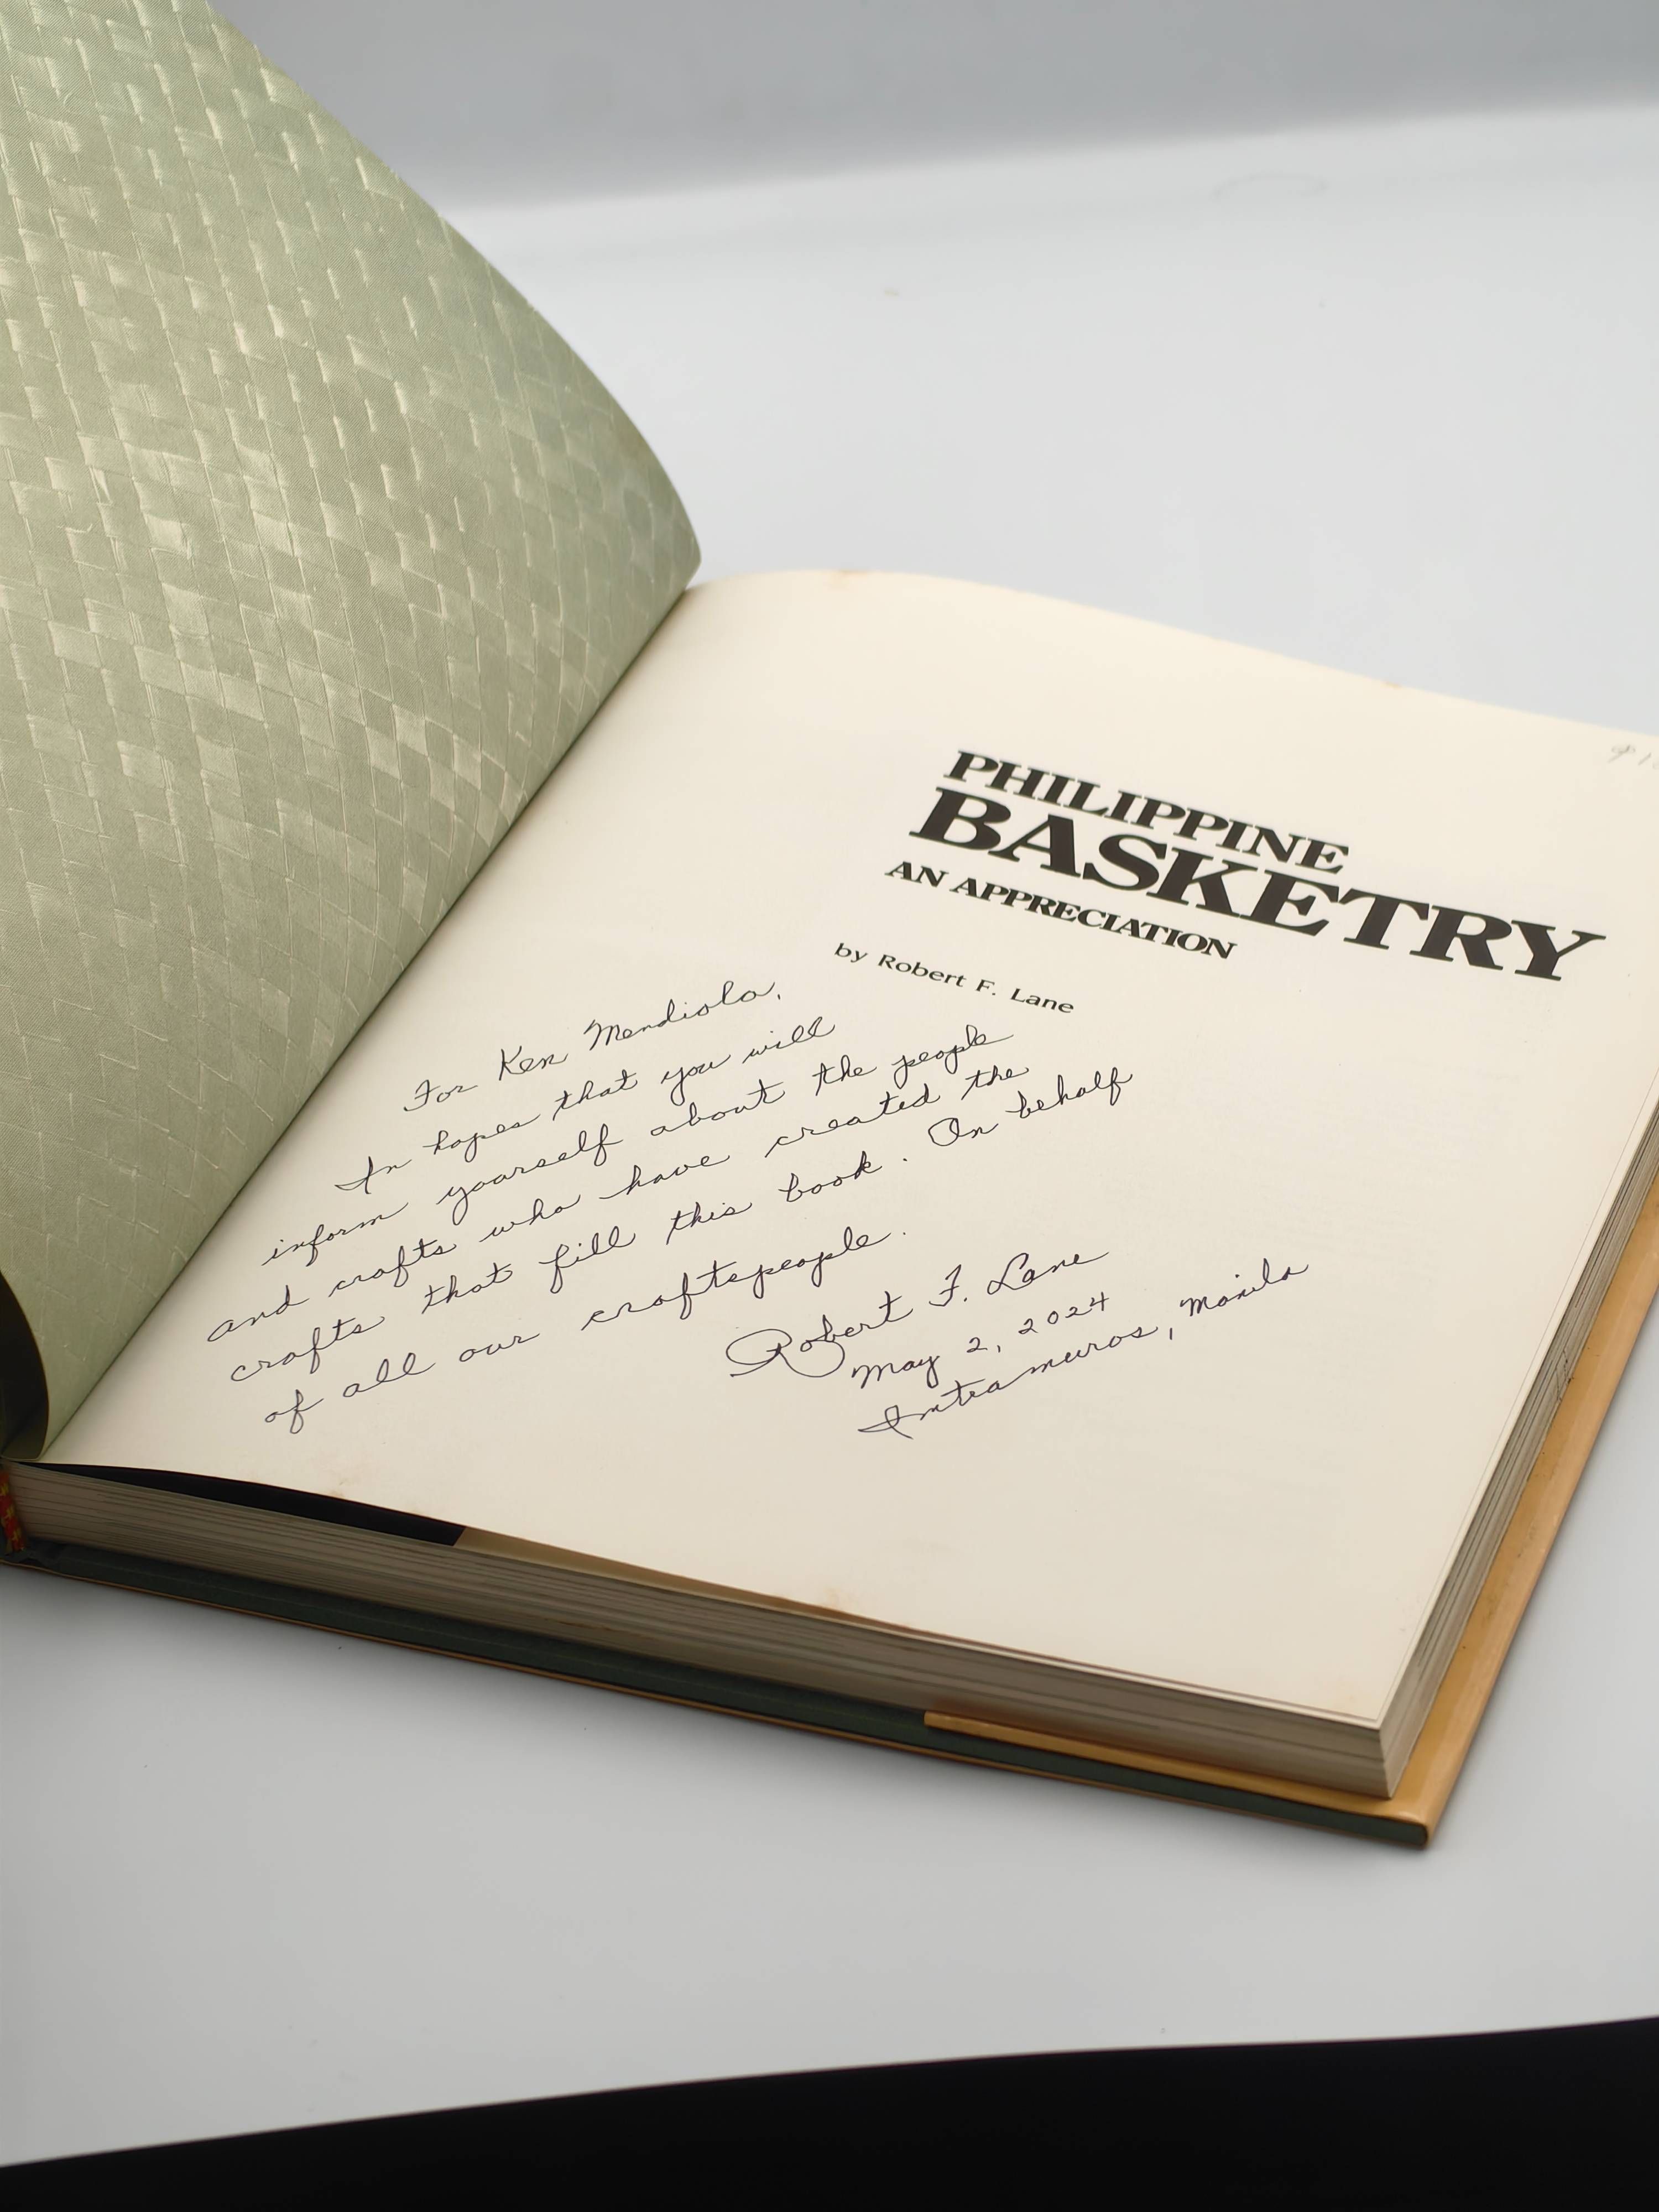 PHILIPPINE
BASKETRY
AN APPRECIATION
by Robert F. Lane
For Ken Mendiola,
In hopes that you will
inform yourself about the people
and crafts who have created the
crafts that fill this book. On behalf
of all our craftspeople.
Robert F. Lane
May 2, 2024
Intramuros, Manila